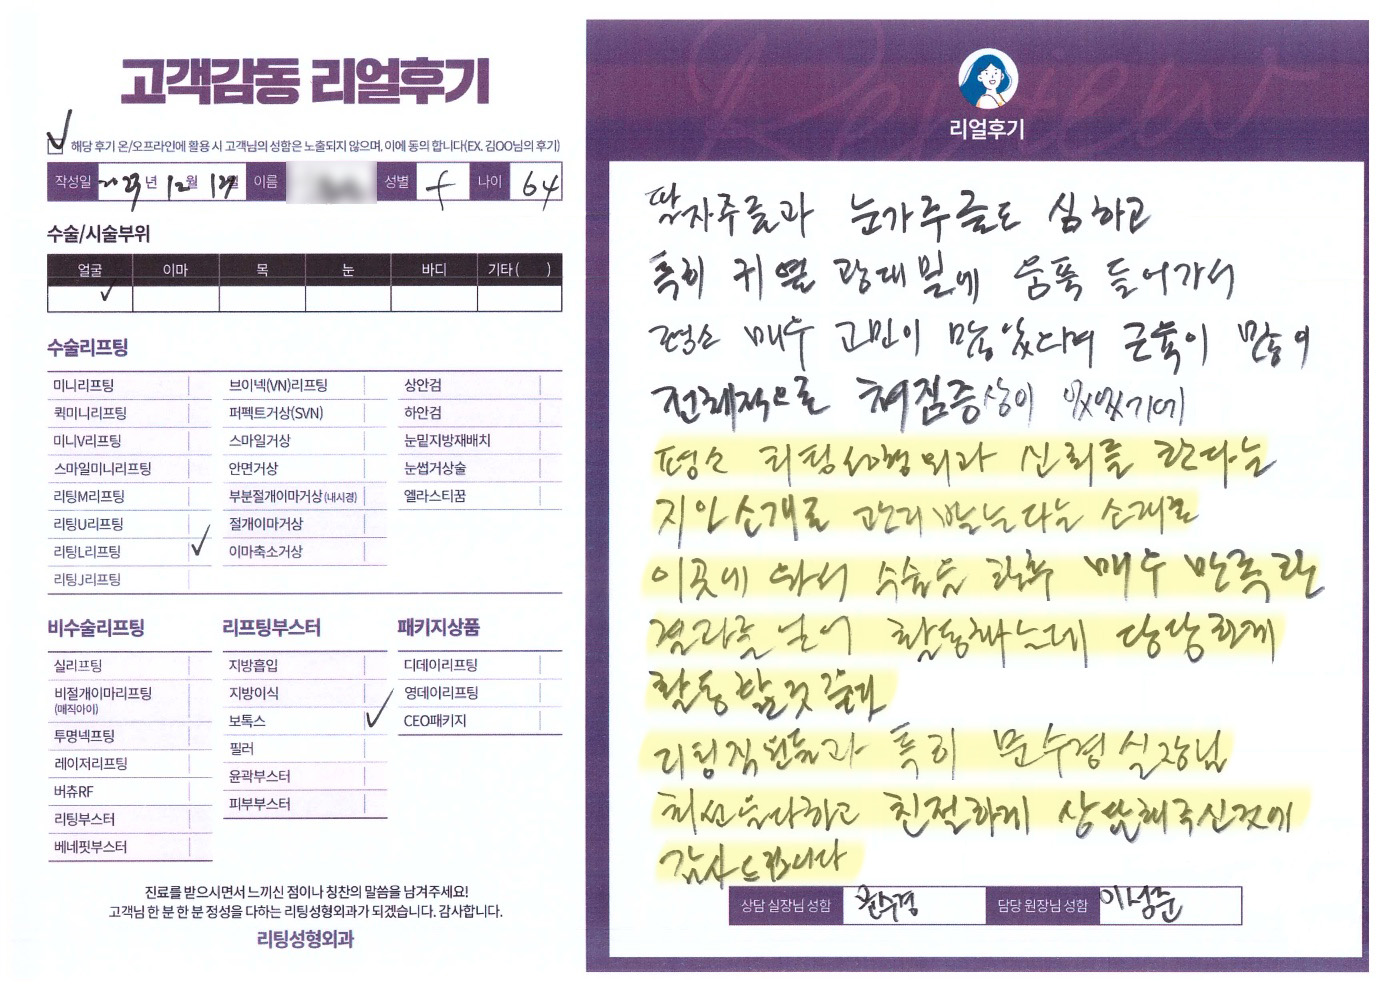 고객감동 리얼후기
해당 후기 온/오프라인에 활용 시 고객님의 성함은 노출되지 않으며, 이에 동의 합니다(EX. 김OO님의 후기)
작성일 2023년 12월 12일 이름 성별 f 나이 64
수술/시술부위
얼굴 이마 목 눈 바디 기타( )
수술리프팅
미니리프팅 브이넥(VN)리프팅 상안검
퀵미니리프팅 퍼펙트거상(SVN) 하안검
미니V리프팅 스마일거상 눈밑지방재배치
스마일미니리프팅 안면거상 눈썹거상술
리팅M리프팅 부분절개이마거상(내시경) 엘라스티꿈
리팅U리프팅 절개이마거상
리팅L리프팅 이마축소거상
리팅J리프팅
비수술리프팅 리프팅부스터 패키지상품
실리프팅 지방흡입 디데이리프팅
비절개이마리프팅 지방이식 영데이리프팅
(매직아이)
보톡스 CEO패키지
투명넥프팅 필러
레이저리프팅 윤곽부스터
버츄RF 피부부스터
리팅부스터
베네핏부스터
진료를 받으시면서 느끼신 점이나 칭찬의 말씀을 남겨주세요!
고객님 한 분 한 분 정성을 다하는 리팅성형외과가 되겠습니다. 감사합니다.
리팅성형외과
리얼후기
팔자주름과 눈가주름도 심하고
특히 귀옆 광대밑에 움푹 들어가서
평소 매우 고민이 많았다며 근육이 많아
전체적으로 쳐짐증상이 있었기에
평소 리팅성형외과 신뢰를 한다는
지인소개로 관리 받는다는 소개로
이곳에 와서 수술을 한후 매우 만족한
결과를 얻어 활동하는데 당당하게
활동할것 같다
리팅직원들과 특히 문수경 실장님
최선을다하고 친절하게 상담해주신것에
감사드립니다
상담 실장님 성함 문수경 담당 원장님 성함 이성준